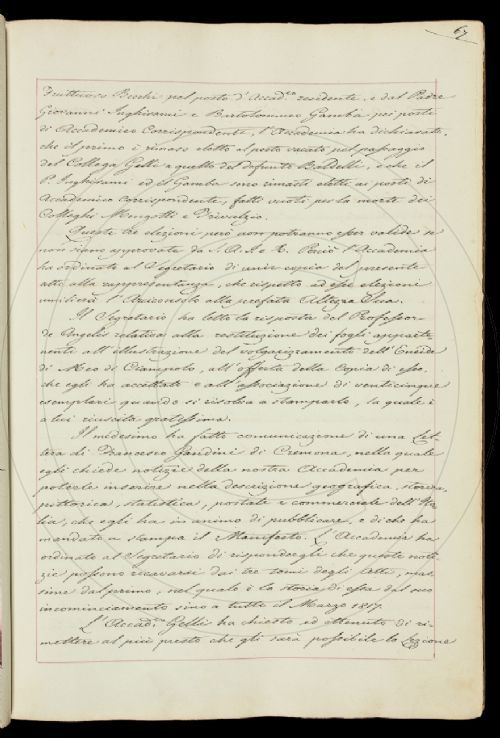 67
Fruttuoso Becchi pel posto d'Accad.co residente, e dal Padre
Giovanni Inghirami e Bartolommeo Gamba pei posti
di Accademico Corrispondente, l'Accademia ha dichiarato,
che il primo è rimaso eletto al posto vacato pel passaggio
del Collega Gelli a quello del defunto Baldelli, e che il
P. Inghirami ed il Gamba sono rimasti eletti ai posti di
Accademico corrispondente, fatti vuoti per la morte dei
Colleghi Mengotti e Trivulzio.
Queste tre elezioni però non potranno esser valide se
non siano approvate da S. A. I. e R. Perciò l'Accademia
ha ordinato al Segretario di unir copia del presente
atto alla rappresentanza, che rispetto ad esse elezioni
umilierà l'Arciconsolo alla prefata Altezza Sua.
Il Segretario ha letto la risposta del Professor
de Angelis relativa alla restituzione dei fogli apparte
nenti all'illustrazione del volgarizzamento dell'Eneide
di Meo di Ciampolo, all'offerta della Copia di esso
che egli ha accettato e all'associazione di venticinque
esemplari quando si risolva a stamparlo, la quale è
a lui riuscita gratissima.
Il medesimo ha fatto comunicazione di una Let-
tera di Francesco Gandini di Cremona, nella quale
egli chiede notizie della nostra Accademia per
poterle inserire nella descrizione geografica, storica,
pittorica, statistica, postale e commerciale dell'Ita
lia, che egli ha in animo di pubblicare, e di che ha
mandato a stampa il Manifesto. L'Accademia ha
ordinato al Segretario di rispondergli che queste noti-
zie possono ricavarsi dai tre tomi degli Atti, mas
sime dal primo, nel quale è la storia di essa dal suo
incominciamento sino a tutto il Marzo 1817.
L'Accad.co Gelli ha chiesto ed ottenuto di ri-
mettere al più presto che gli sarà possibile la Lezione